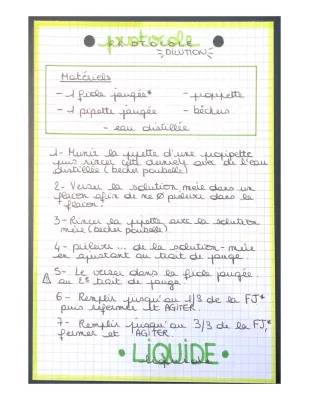 protocole
PROTOCOLE
DILUTION
Matériels
- 1 fiole jaugée*
- propipette
- 1 pipette jaugée
- béchers
- eau distillée
1- Munir la pipette d'une propipette
puis rincer cette dernière avec de l'eau
distillée (becher poubelle)
2- Verser la solution mère dans un
flacon afin de ne Ø prélever dans le
flacon.
3- Rincer la pipette avec la solution
mère (becher poubelle)
4- prélever ... de la solution-mère
en ajustant au trait de jauge.
5- Le verser dans la fiole jaugée
au 2e trait de jauge
6- Remplir jusqu'au 1/3 de la FJ*
puis refermer et AGITER.
7- Remplir jusqu'au 3/3 de la FJ*,
fermer et AGITER.
• LIQUIDE •